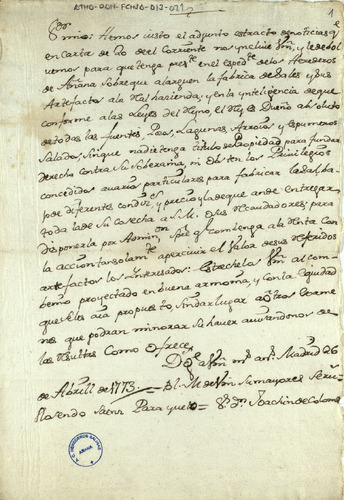 ATHO-DOH-FCHSO-D12-021
1
Sor mio: Hemos visto el adjunto extracto de noticias qe
en Carta de 20 del Corriente nos incluie Vm, y le debol
vemos para que tenga preste en el expedte de los Herederos
de Añana Sobre que alarguen la fabrica de Sales y sus
Artefactos a la Rl hazienda; y en la ynteligencia de que
conforme a las Leyes del Reyno, el Rey es Dueño absoluto
de todas las fuentes, Pozos, Lagunas, Arroios y espumeros
Salados, sin que nadie tenga titulo de Propiedad para fundar
derecho contra su Soberania, ni obsten los Privilegios
concedidos a varios particulares para fabricar la Sal, ba
jo de diferentes condizs y precio, y la de que an de entregar
toda la de su Cosecha a S.M. o sus Recaudadores; para
disponerla por Admin.on Segn y Comtenga a la Renta con
la accion tan solamte a percivir el Valor de sus Referidos
artefactos los interesados: estrechelos Vm al com
benio proyectado en buena armonia, y con la equidad
que se les aia propuesto, sin dar lugar a otros exame
nes que podran minorar su haver avisandonos de
las Resultas Como ofrece
Ds ge a Vm ms as Madrid 26
de Abrill de 1773 = Bl. M. de Vm Sus mayores Servs
Rosendo Saenz Parayuelo = Dn Joachin de Coloma
A.C. HEREDEROS SALINAS
AÑANA